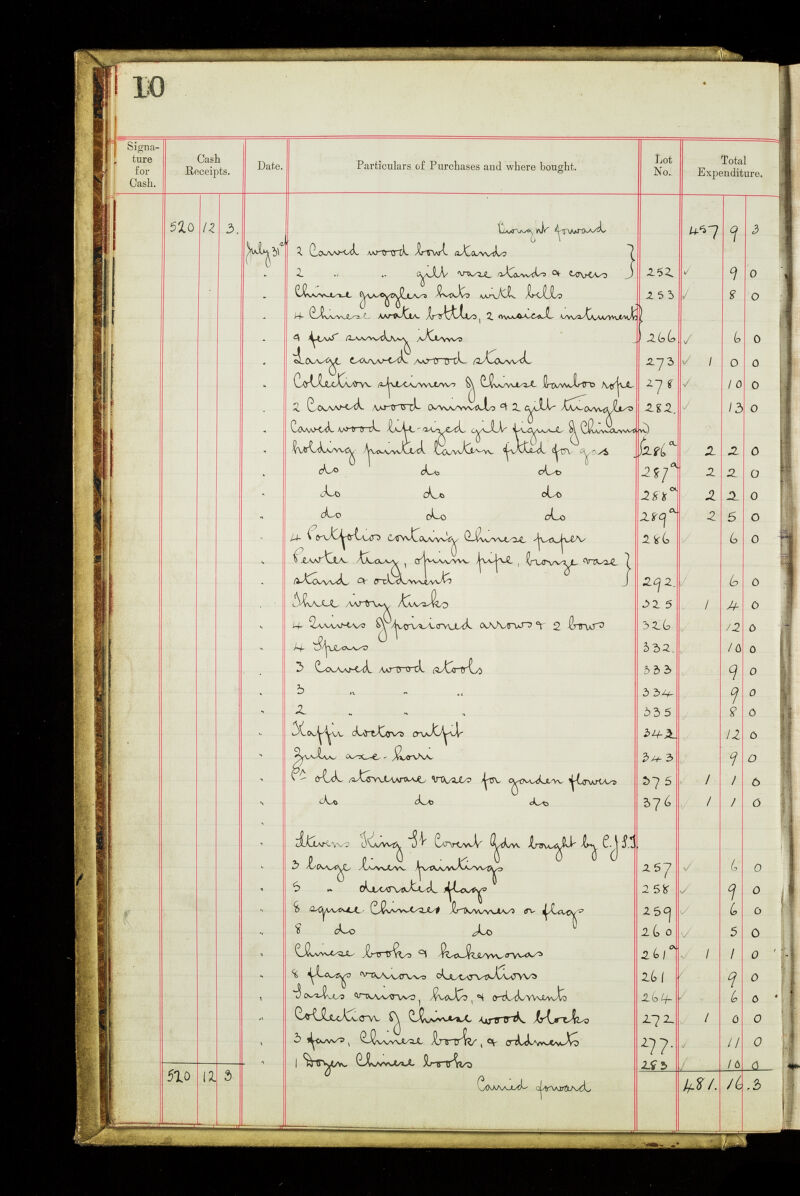 10
Signature for Cash. Cash Receipts. Date. Particulars of Purchases and where bought. Lot No. Total Expenditure.
520 12 3. Brought forward 457 9 3
July 31st 2 Carved wood bowl stands
2 .. .. gilt vase stands & covers 252 9 0
Chinese joggelers hats with bells 253 8 0
4 Chinese water bottles, 2 musical instruments
& few sundry items 266 6 0
Large carved wood stand 273 1 0 0
Collection specimens of Chinese bamboo rope 278 10 0
2 Carved wood animals & 2 gilt triangles 282. 13 0
Carved wood life-sized gilt figure of Chinaman
holding painted lantern fitted for gas 286a 2 2 0
do do do 287a 2 2 0
do do do 288a 2 2 0
do do do 289a 2 5 0
4 Portfolios containing Chinese paper 286 6 0
Pewter tray, opium pipe, bronze vase
stand & oddments 292. 6 0
Three worn tusks 325 1 4 0
4 Quivers of poisoned arrows & 2 bows 326 12 0
4 Spears 332. 10 0
3 Carved wood stools 333 9 0
3 " " " 334 9 0
2 " " " 335 8 0
Kaffir doctors outfit 342 12 0
Zulu axe - horn 343 9 0
Pr old stoneware vases for garden flowers 375 1 1 0
do do do 376 1 1 0
Stevens King St Covent Gdn bought by C.J.S.T.
3 large linen paintings 257 6 0
5 " decorated flags 258 9 0
8 square Chinese banners or flags 259 6 0
8 do do 260 5 0
Chinese books & 261a 1 1 0
8 flags various decorations 261 9 0
Tasks various, hats, & oddments 264 6 0
Collection of Chinese wood blocks 272 1 0 0
3 fans, Chinese book, & oddments 277. 11 0
1 Chinese books 283 10 0
520 12 3 Carried forward 481. 16.3